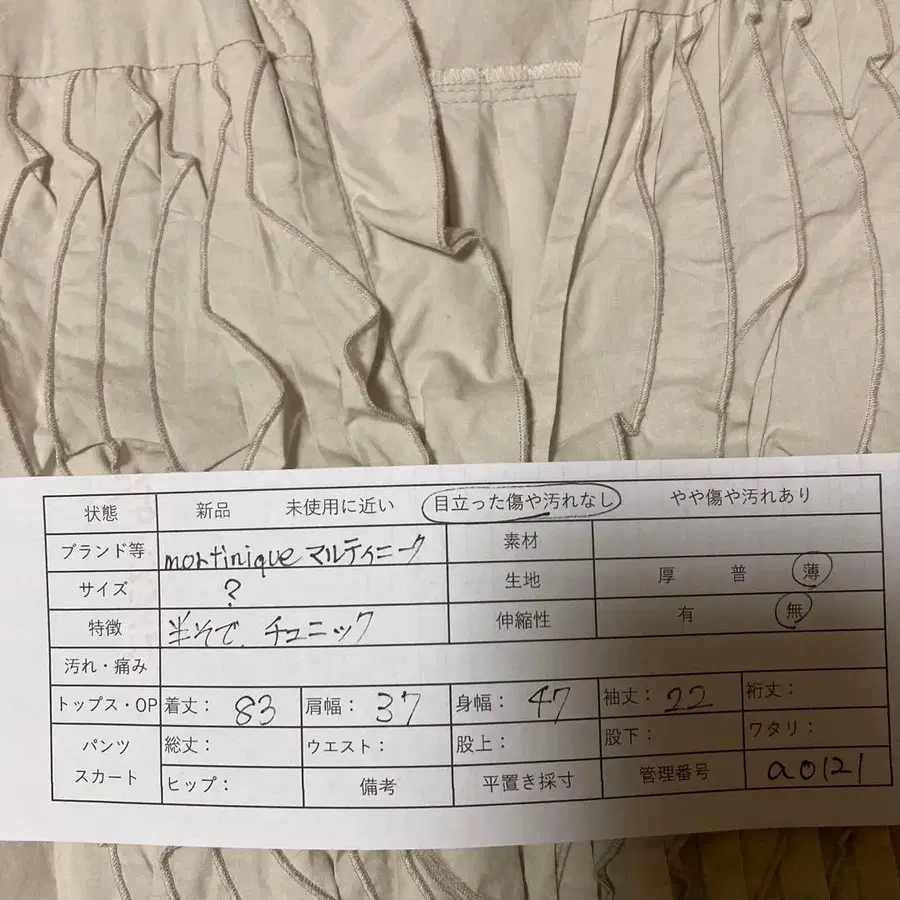 状態 新品 未使用に近い 目立った傷や汚れなし やや傷や汚れあり
ブランド等 martinique マルティニーク 素材
サイズ ? 生地 厚 普 薄
特徴 半そで. チュニック 伸縮性 有 無
汚れ・痛み
トップス・OP 着丈： 83 肩幅： 37 身幅： 47 袖丈： 22 裄丈：
パンツ 総丈： ウエスト： 股上： 股下： ワタリ：
スカート ヒップ： 備考 平置き採寸 管理番号 a0121